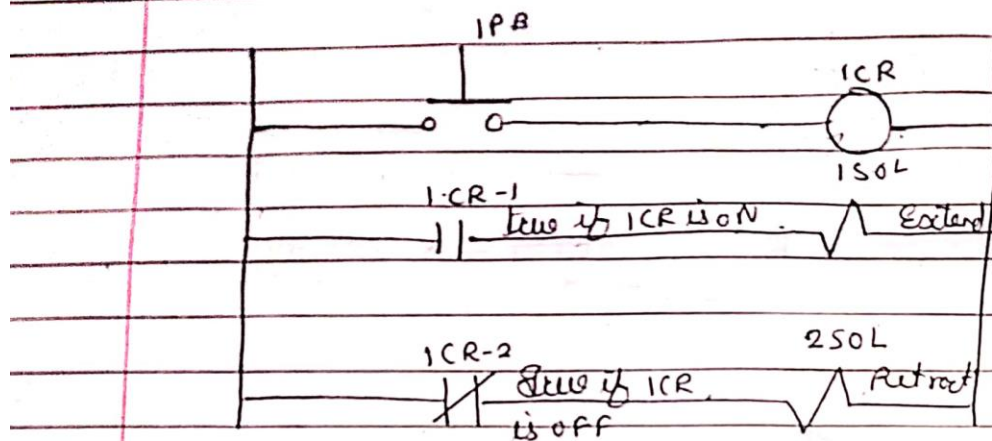 1PB
1CR
1SOL
1CR-1
true if 1CR is ON
Extend
1CR-2
2SOL
True if 1CR
Retract
is OFF